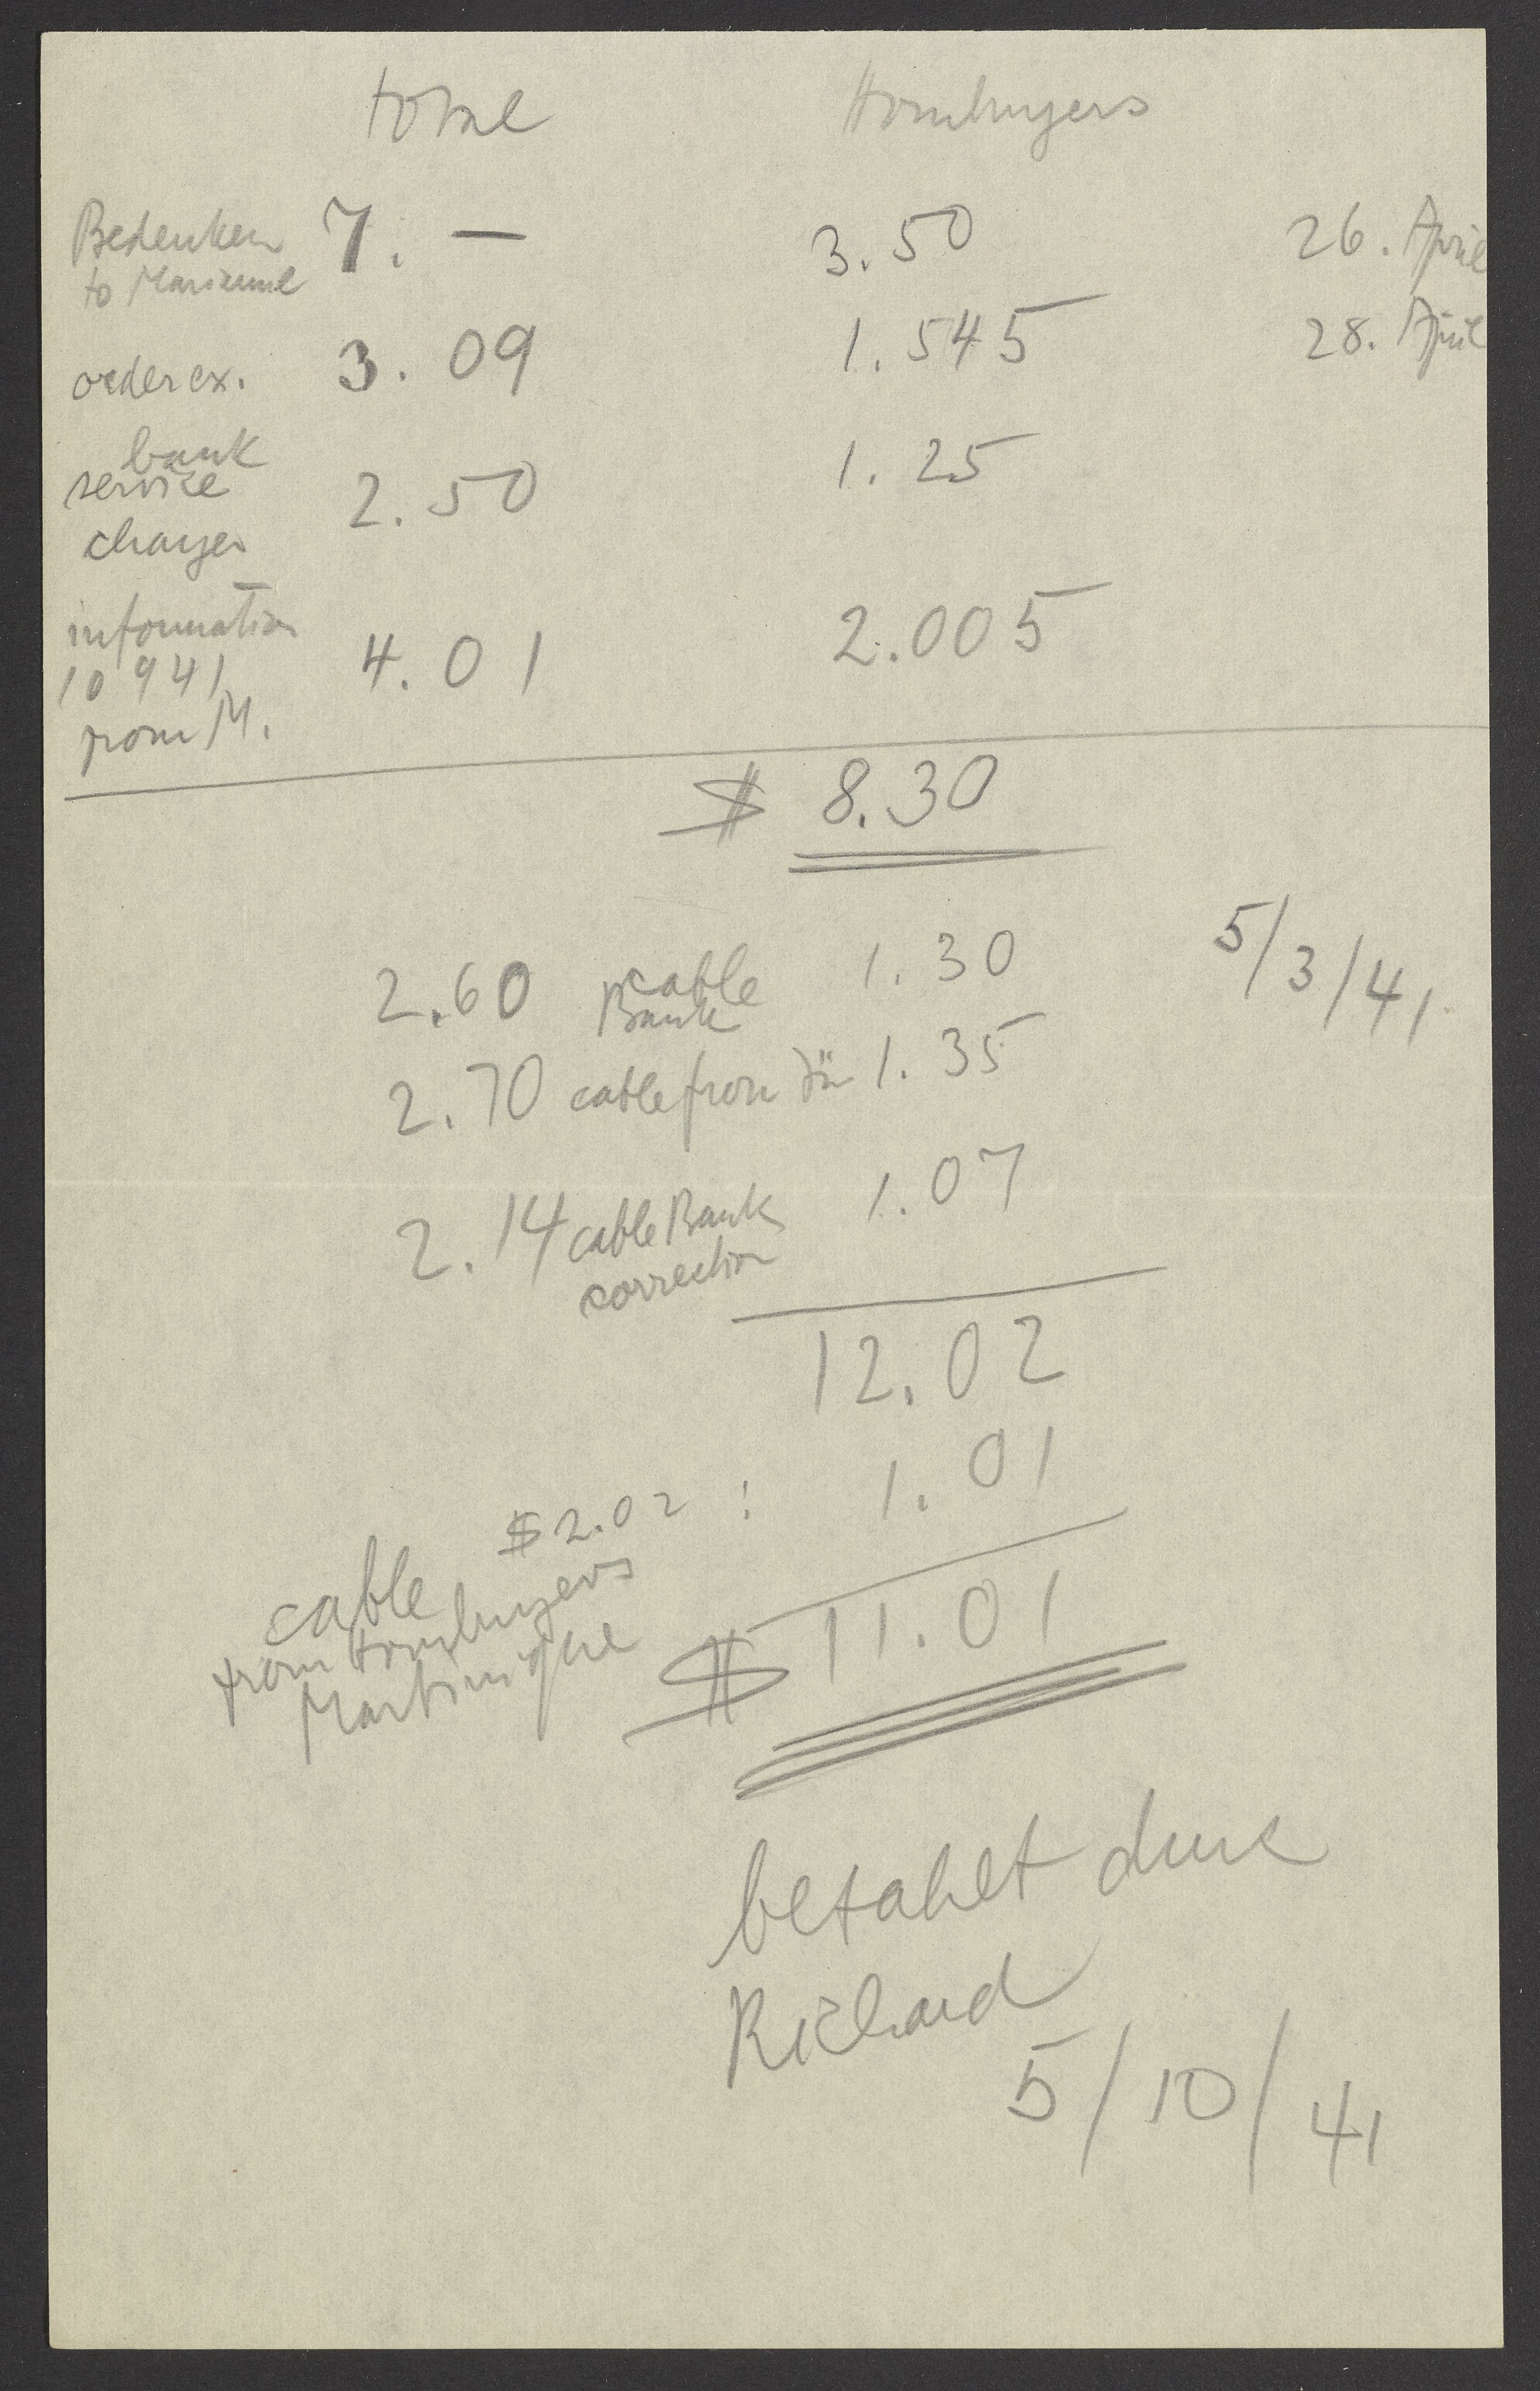 total Homburgers
Bedenken 7. — 3.50 26. April
to Marianne
order ex. 3.09 1.545 28. April
bank
service 2.50 1.25
charges
information
10941 4.01 2.005
from M.
$ 8.30
2.60 cable 1.30 5/3/41
Bank
2.70 cable from 1.35
2.14 cable Bank 1.07
correction
12.02
$2.02 : 1.01
cable
from Homburgers
Martinique
$ 11.01
bezahlt durc
Richard
5/10/41